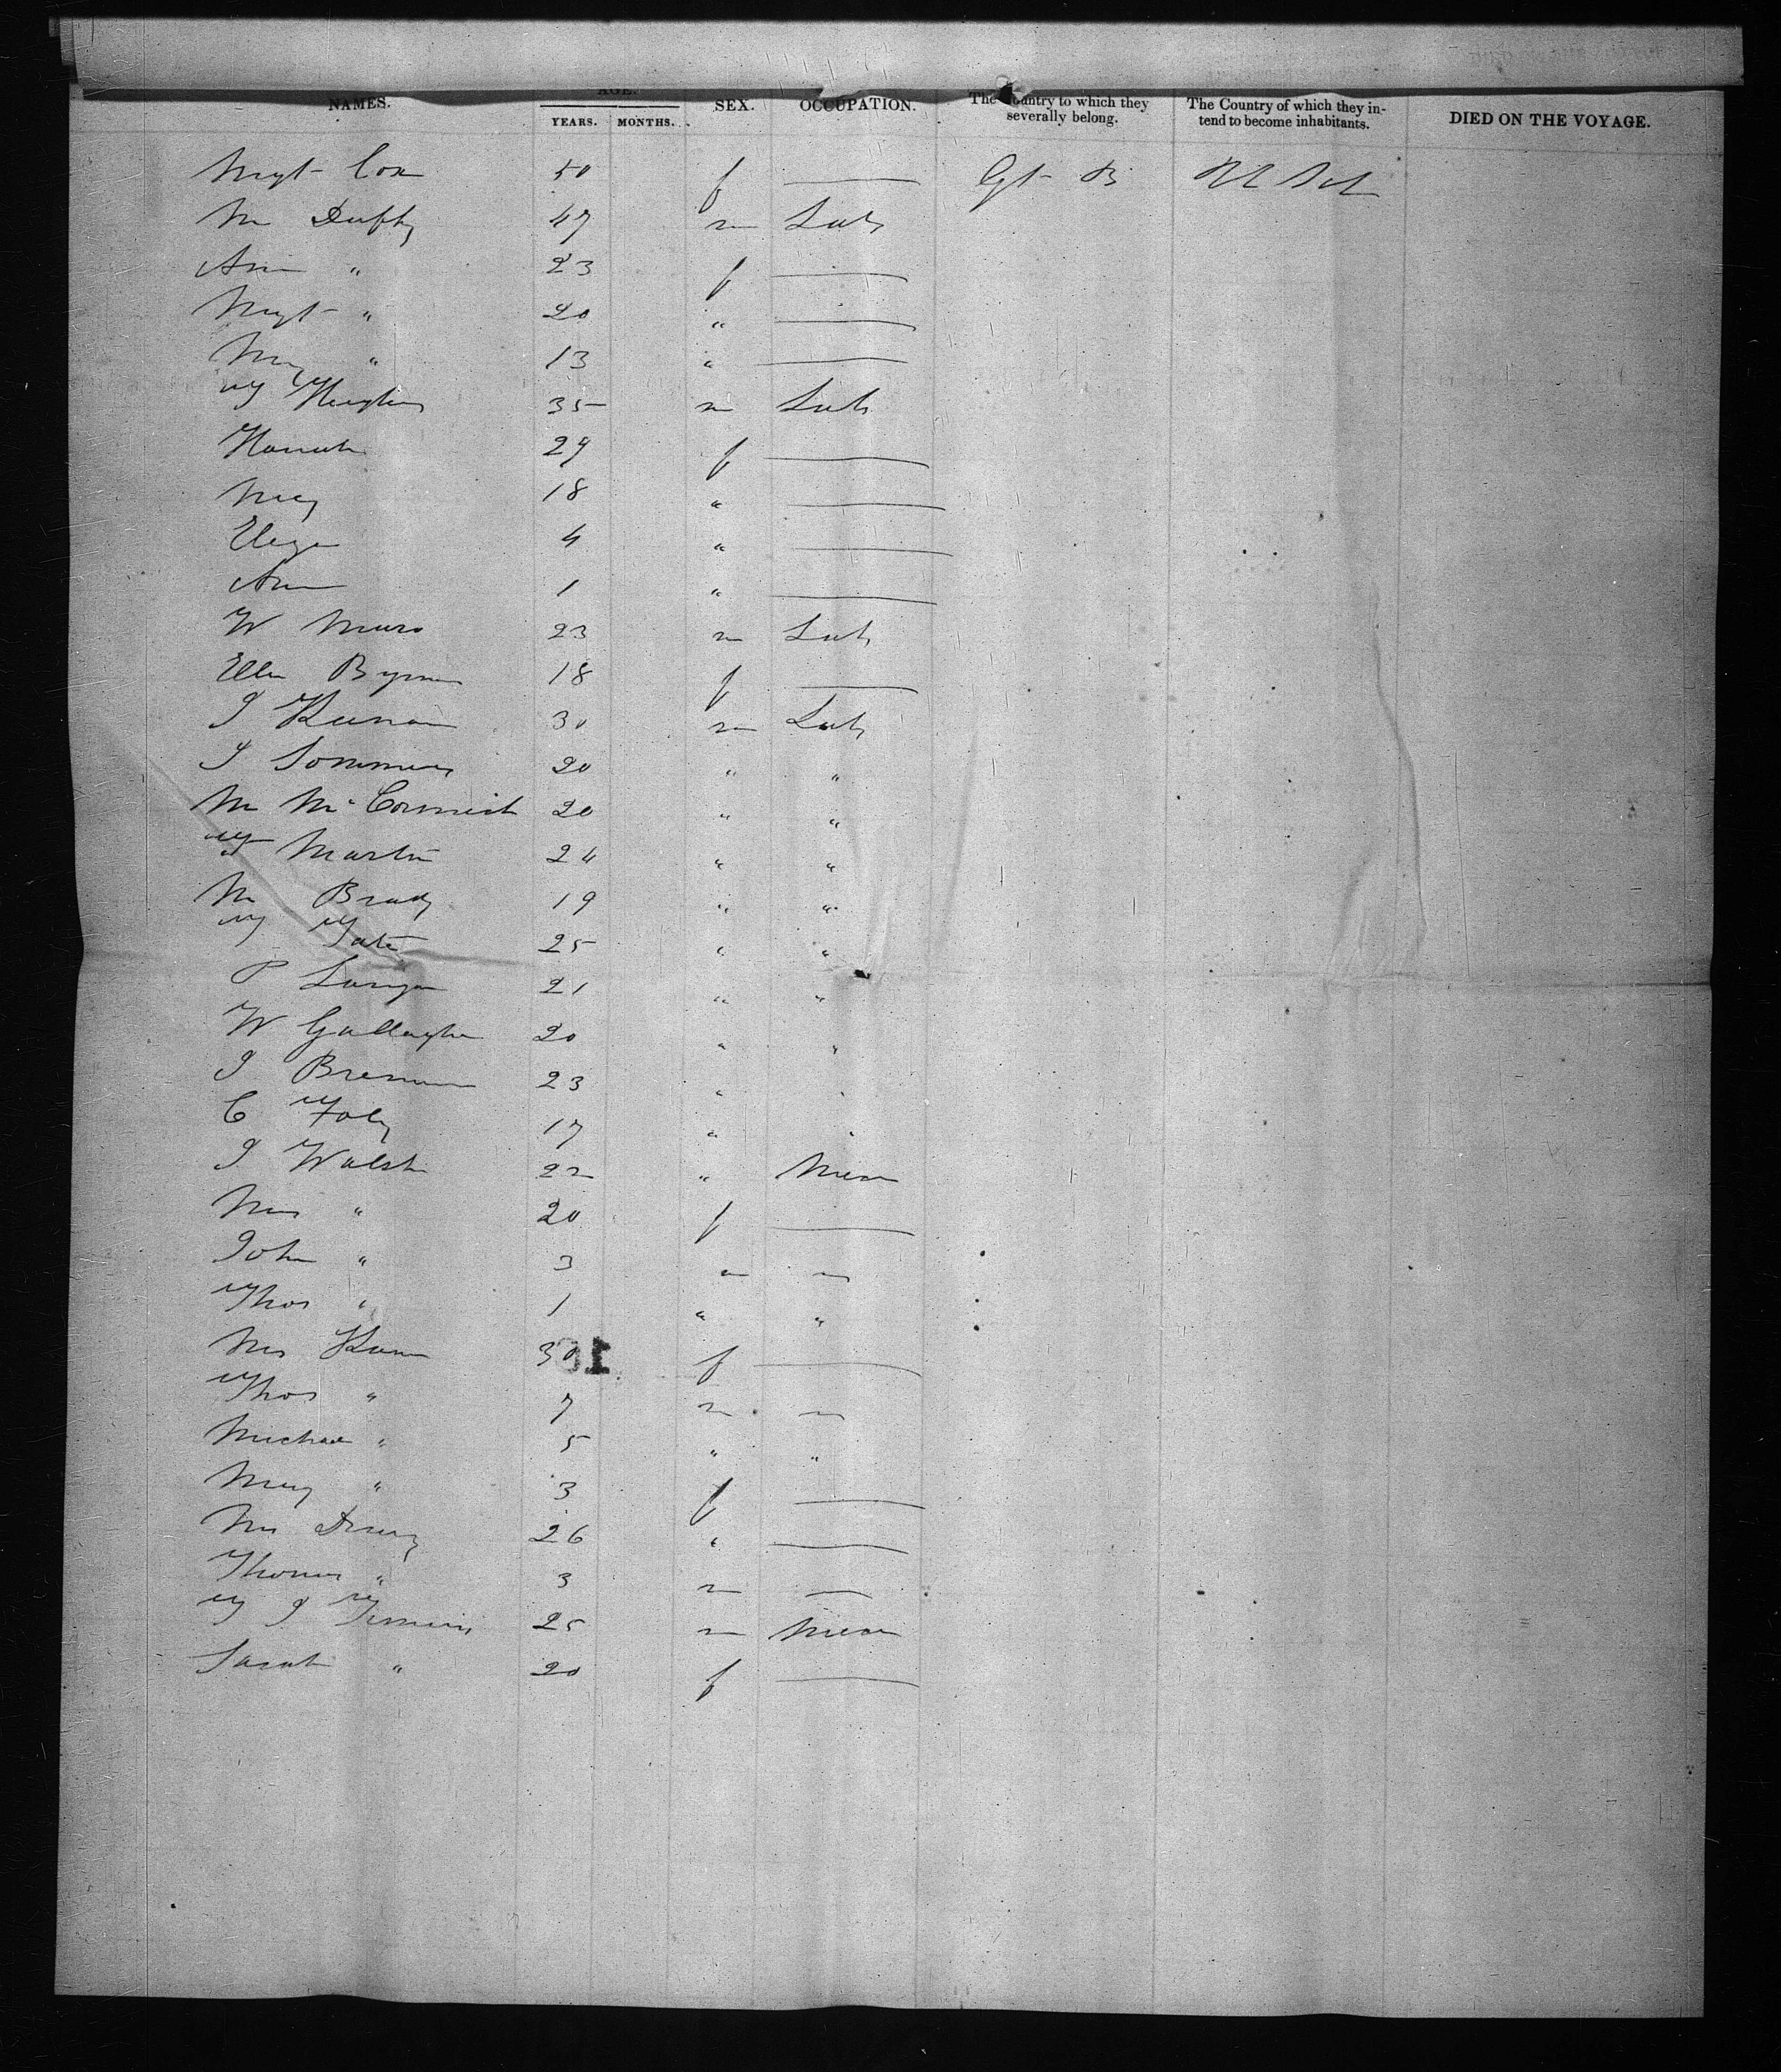 NAMES. AGE. YEARS. MONTHS. SEX. OCCUPATION. The Country to which they severally belong. The Country of which they intend to become inhabitants. DIED ON THE VOYAGE.
Mgt Cox 50 f — Gt B
M Duffy 47 m Lab
Ann " 23 f —
Mgt " 20 " —
My " 13 " —
Hughes 35 m Lab
Hanah 29 f —
Mary 18 " —
Eliza 4 " —
Ann 1 " —
W 23 m Lab
Ellen Byrne 18 f —
J Keenan 30 m Lab
J Sommers 20 " "
M McCormick 20 " "
Martin 24 " "
M Brady 19 " "
25 " "
P 21 " "
W Gallagher 20 " "
J Brennan 23 " "
C Foley 17 " "
J Walsh 22 "
Mrs " 20 f —
John " 3 m —
Thos " 1 " "
Mrs Kane 30 f —
Thos " 7 m —
Michael " 5 " "
Mary " 3 f —
Mrs 26 " —
Thomas " 3 m —
25 m
Sarah " 20 f —